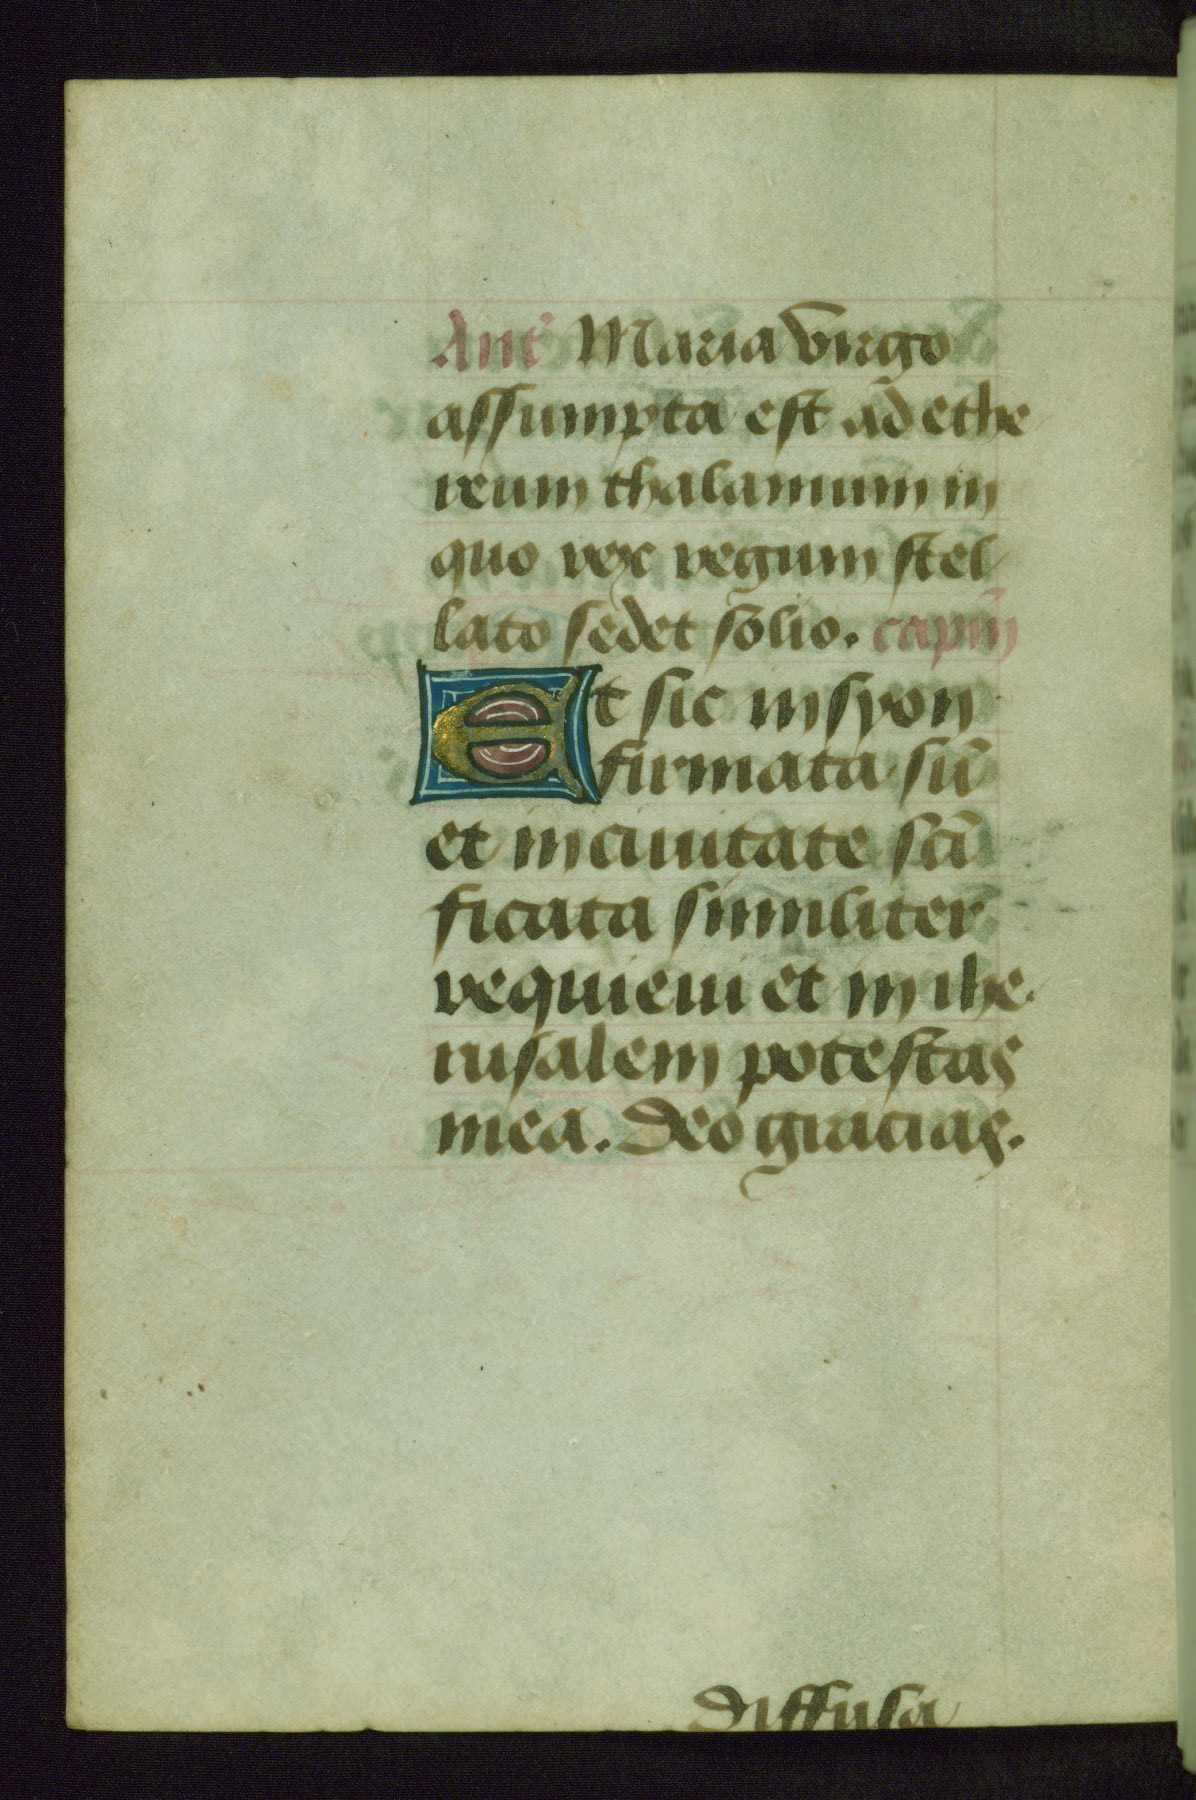 Ant̄ Maria v̄irgo
assumpta est ad ethe
reum thalamum in
quo rex regum stel
lato sedet solio. capim̄
Et sic in syon
firmata sū
et in ciuitate sc̄ti
ficata similiter
requieui et in ihe
rusalem potestas
mea. Deo gracias.
diffusa